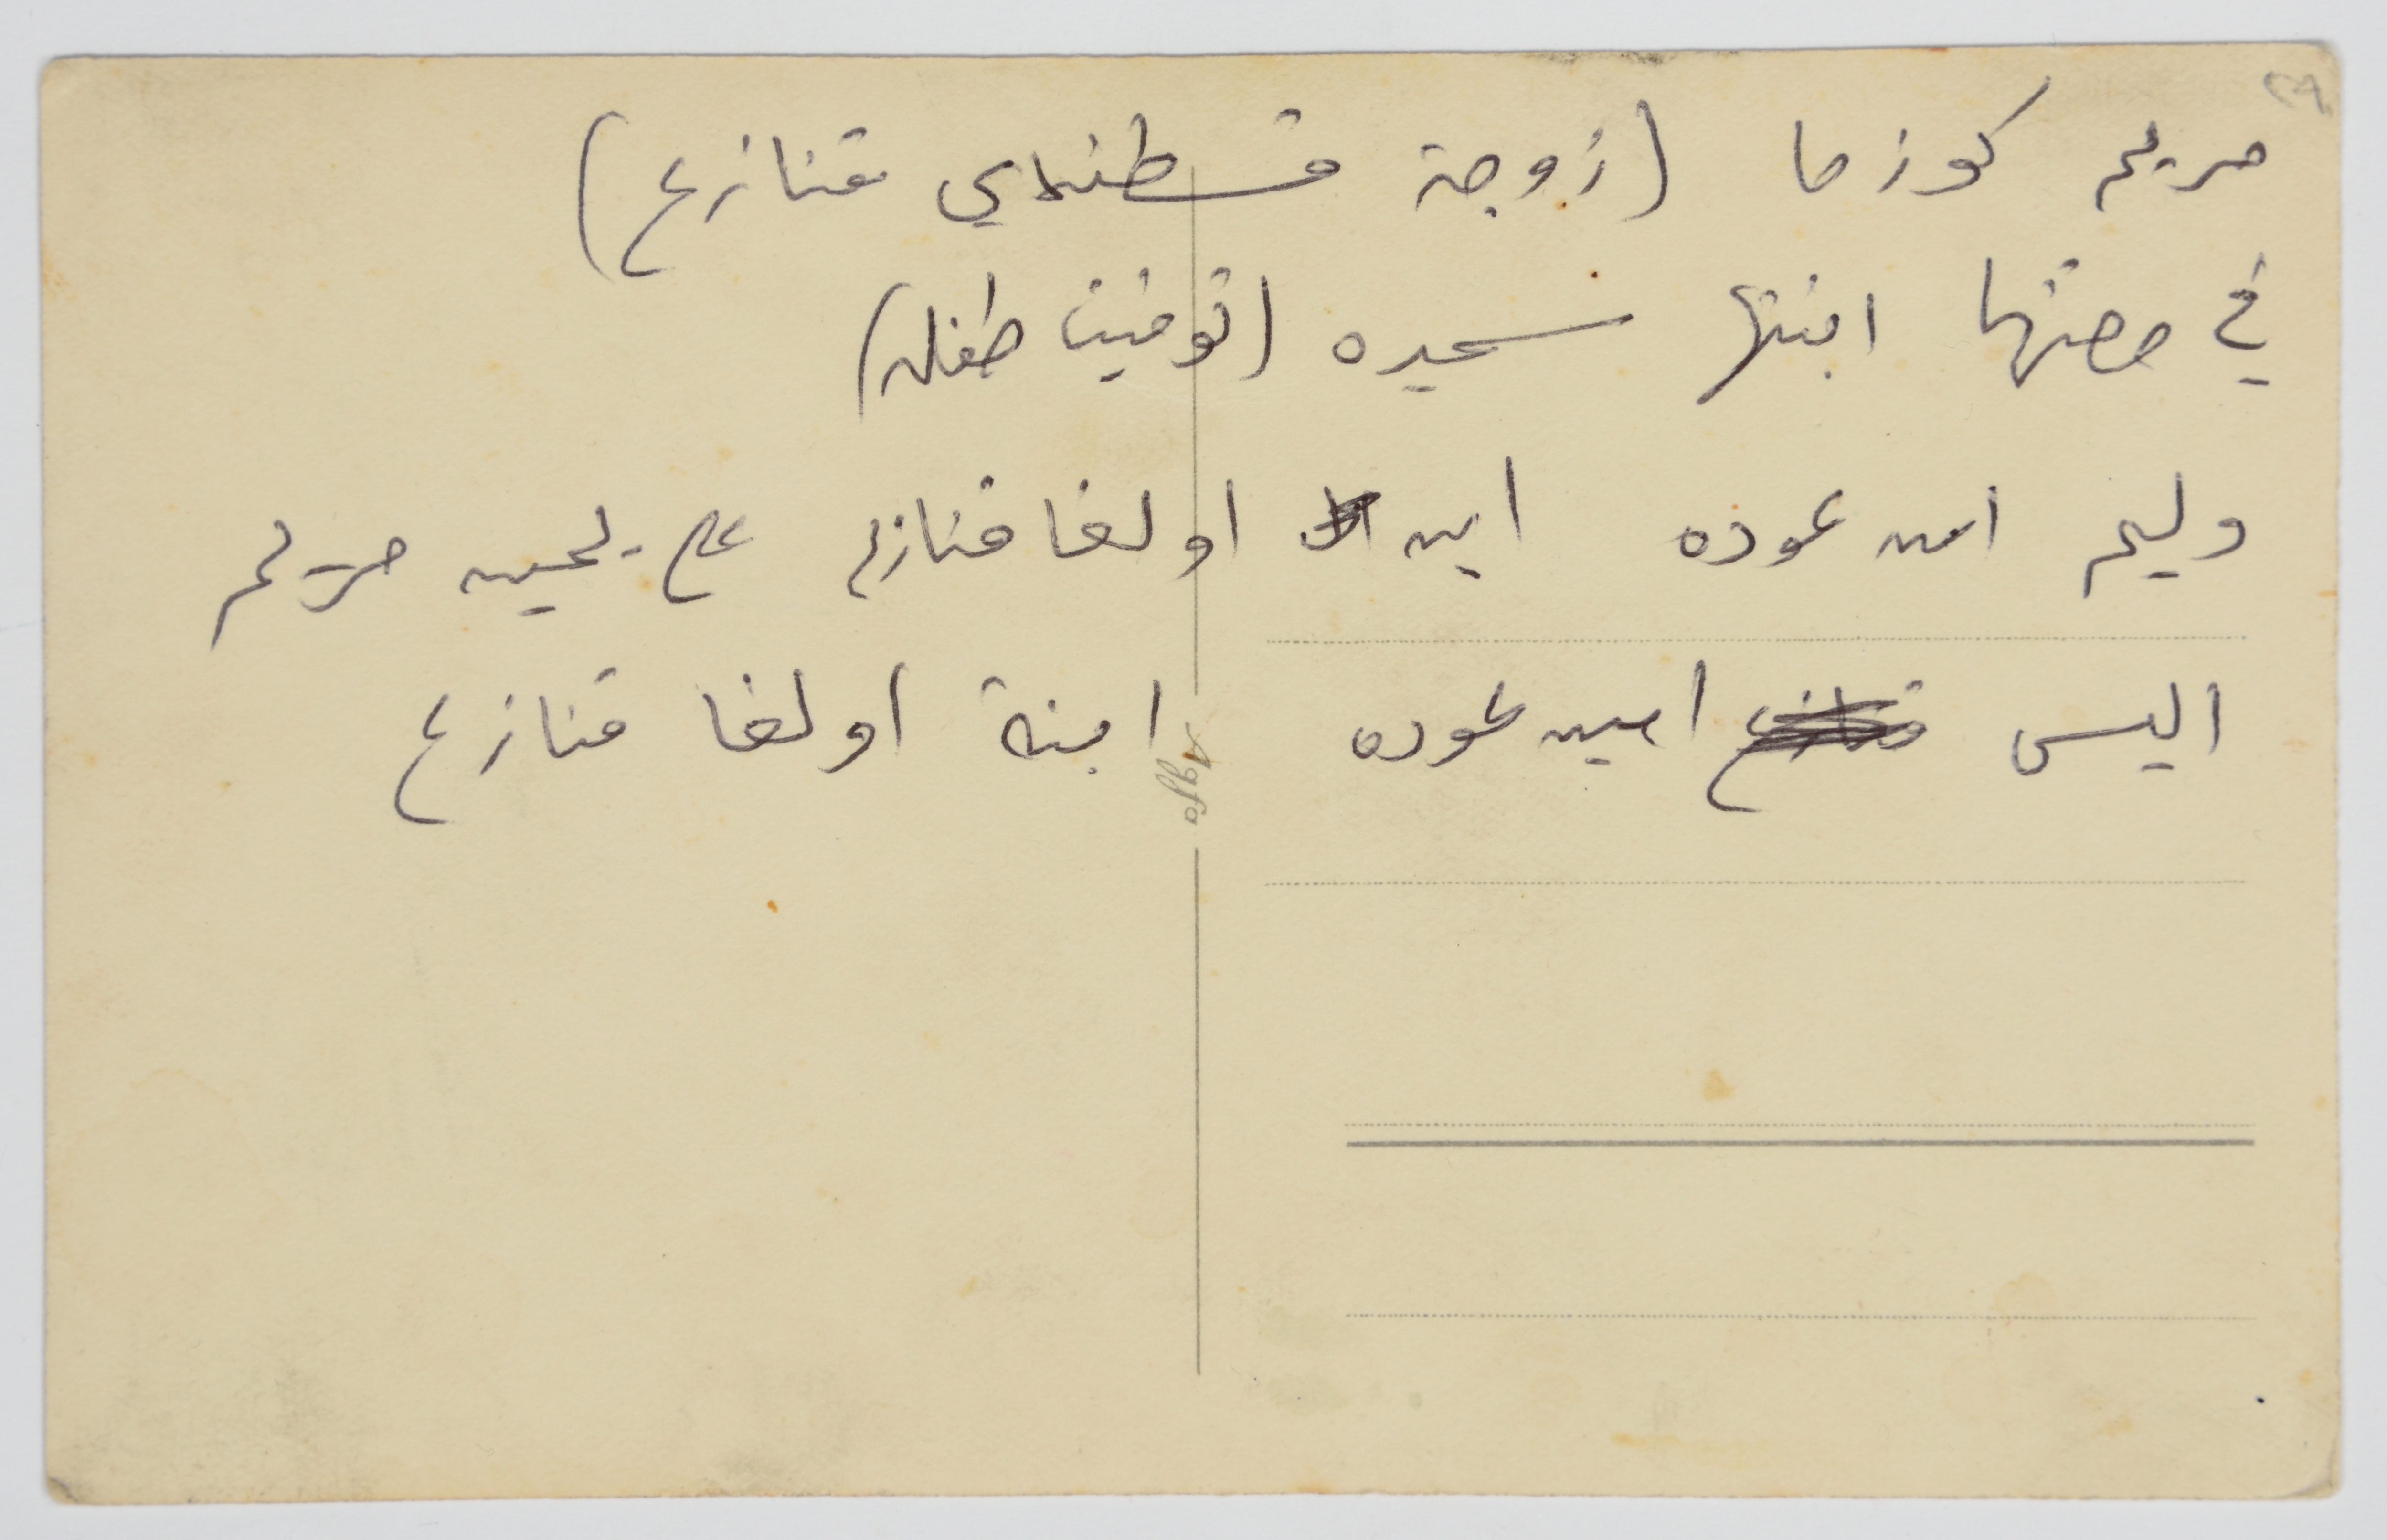 مريم كوزما (زوجة قسطندي قنازع)
في حضنها ابنتها سعيده (توفيت طفله)
وليم امين عوده ابن اولغا قنازع على يمين مريم
اليس امين عوده ابنة اولغا قنازع
Agfa